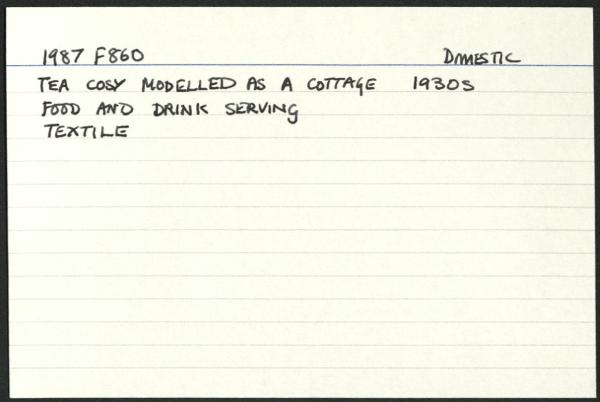 1987 F860 DOMESTIC
TEA COSY MODELLED AS A COTTAGE 1930s
FOOD AND DRINK SERVING
TEXTILE